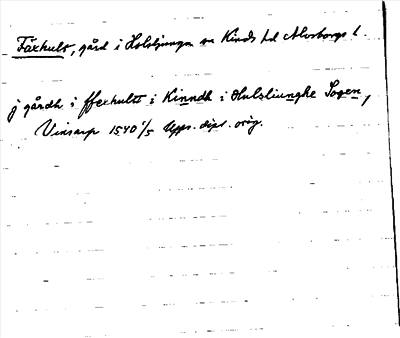 Färhult, gård i Holsljunga sn Kinds hd Älvsborgs l.
j gårdh i fferhultt i Kinndh i Hulsliunghe Sogen,
Vinsarp 1540 1/5 Upps. dipl. orig.